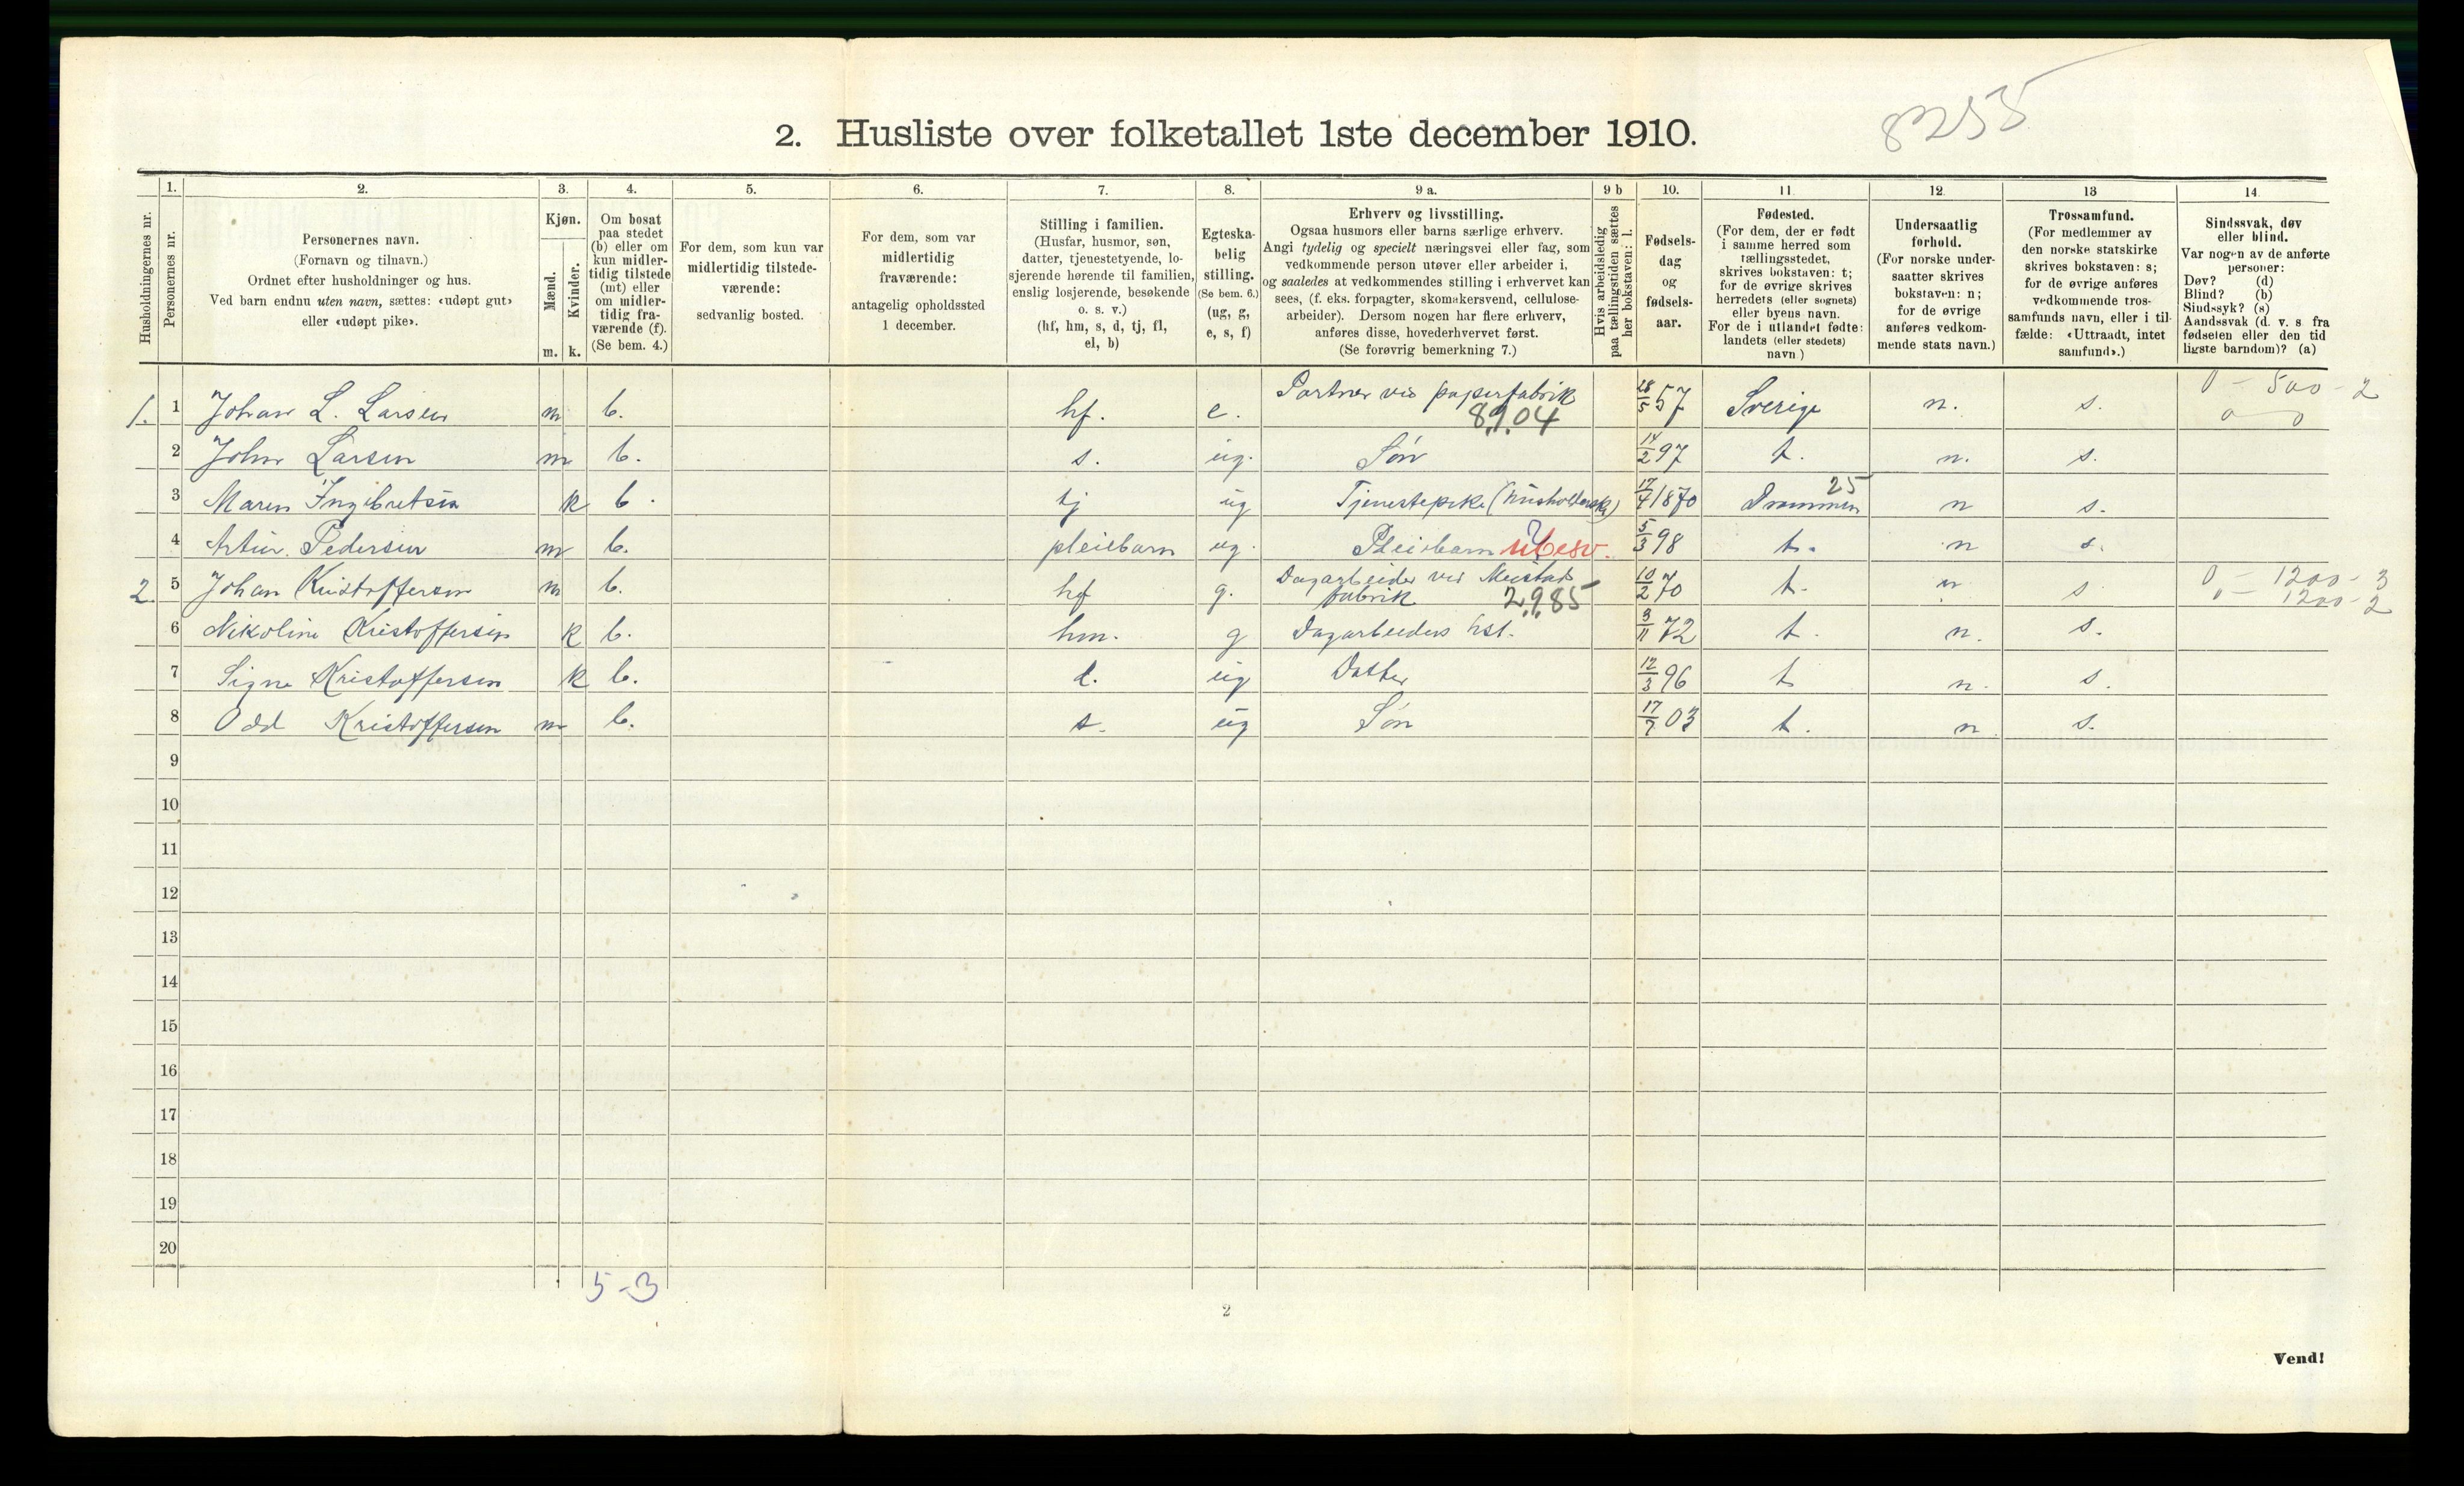 8255
2. Husliste over folketallet 1ste december 1910.
1. 2. 3. 4. 5. 6. 7. 8. 9 a. 9 b 10. 11 12. 13 14
Husholdningernes nr.
Personernes nr.
Personernes navn.
(Fornavn og tilnavn.)
Ordnet efter husholdninger og hus.
Ved barn endnu uten navn, sættes: «udøpt gut»
eller «udøpt pike».
Kjøn.
Mænd.
Kvinder.
m. k.
Om bosat
paa stedet
(b) eller om
kun midler-
tidig tilstede
(mt) eller
om midler-
tidig fra-
værende (f).
(Se bem. 4.)
For dem, som kun var
midlertidig tilstede-
værende:
sedvanlig bosted.
For dem, som var
midlertidig
fraværende:
antagelig opholdssted
1 december.
Stilling i familien.
(Husfar, husmor, søn,
datter, tjenestetyende, lo-
sjerende hørende til familien,
enslig losjerende, besøkende
o. s. v.)
(hf, hm, s, d, tj, fl,
el, b)
Egteska-
belig
stilling.
(Se bem. 6.)
(ug, g,
e, s, f)
Erhverv og livsstilling.
Ogsaa husmors eller barns særlige erhverv.
Angi tydelig og specielt næringsvei eller fag, som
vedkommende person utøver eller arbeider i,
og saaledes at vedkommendes stilling i erhvervet kan
sees, (f. eks. forpagter, skomakersvend, cellulose-
arbeider). Dersom nogen har flere erhverv,
anføres disse, hovederhvervet først.
(Se forøvrig bemerkning 7.)
Hvis arbeidsledig
paa tællingstiden sættes
her bokstaven: l.
Fødsels-
dag
og
fødsels-
aar.
Fødested.
(For dem, der er født
i samme herred som
tællingsstedet,
skrives bokstaven: t;
for de øvrige skrives
herredets (eller sognets)
eller byens navn.
For de i utlandet fødte:
landets (eller stedets)
navn)
Undersaatlig
forhold.
(For norske under-
saatter skrives
bokstaven: n;
for de øvrige
anføres vedkom-
mende stats navn.)
Trossamfund.
(For medlemmer av
den norske statskirke
skrives bokstaven: s;
for de øvrige anføres
vedkommende tros-
samfunds navn, eller i til-
fælde: «Uttraadt, intet
samfund».)
Sindssvak, døv
eller blind.
Var nogen av de anførte
personer:
Døv? (d)
Blind? (b)
Sindssyk? (s)
Aandssvak (d. v. s fra
fødselen eller den tid
ligste barndom)? (a)
1. 1 Johan L. Larsen m b. hf. e. Portner ved papirfabrik 8.9.04 28/5 57 Sverige n. s. 0 - 500 - 2
0 0
2 John Larsen m b. s. ug. Søn 14/2 97 t. n. s.
3 Maren Ingebretsen k b. tj ug Tjenestepike (husholderske) 17/4 1870 Drammen 25 n s.
4 Artur Pedersen m b. pleiebarn ug. Pleiebarn ubesv. 5/3 98 t. n s.
2. 5 Johan Kristoffersen m b. hf g. Dagarbeider ved
fabrik 2.9.85 10/2 70 t. n s 0 - 1200 - 3
" - 1200 - 2
6 Nikoline Kristoffersen k b. hm. g Dagarbeiders hst. 3/11 72 t. n. s.
7 Signe Kristoffersen k b. d. ug Datter 12/3 96 t n. s.
8 Odd Kristoffersen m b. s. ug Søn 17/7 03 t. n s.
9
10
11
12
13
14
15
16
17
18
19
20
5-3
2
Vend!